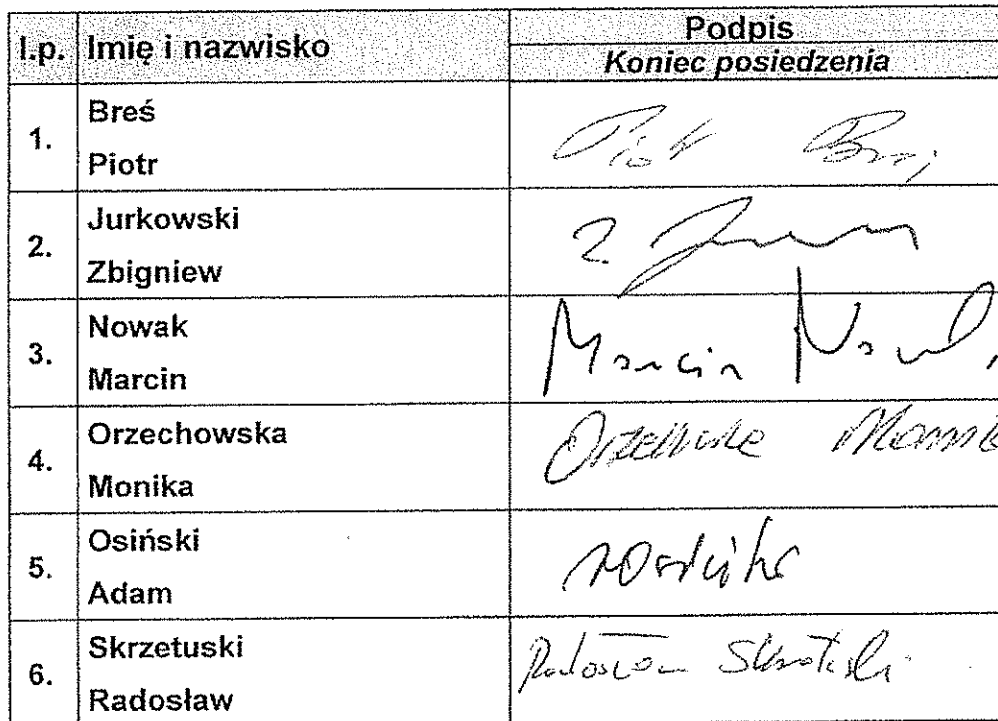 l.p. Imię i nazwisko Podpis
Koniec posiedzenia
1. Breś
Piotr
Piotr Breś
2. Jurkowski
Zbigniew
Z. Jur
3. Nowak
Marcin
Marcin Nowak
4. Orzechowska
Monika
Orzechowska Monika
5. Osiński
Adam
6. Skrzetuski
Radosław
Radosław Skrzetuski